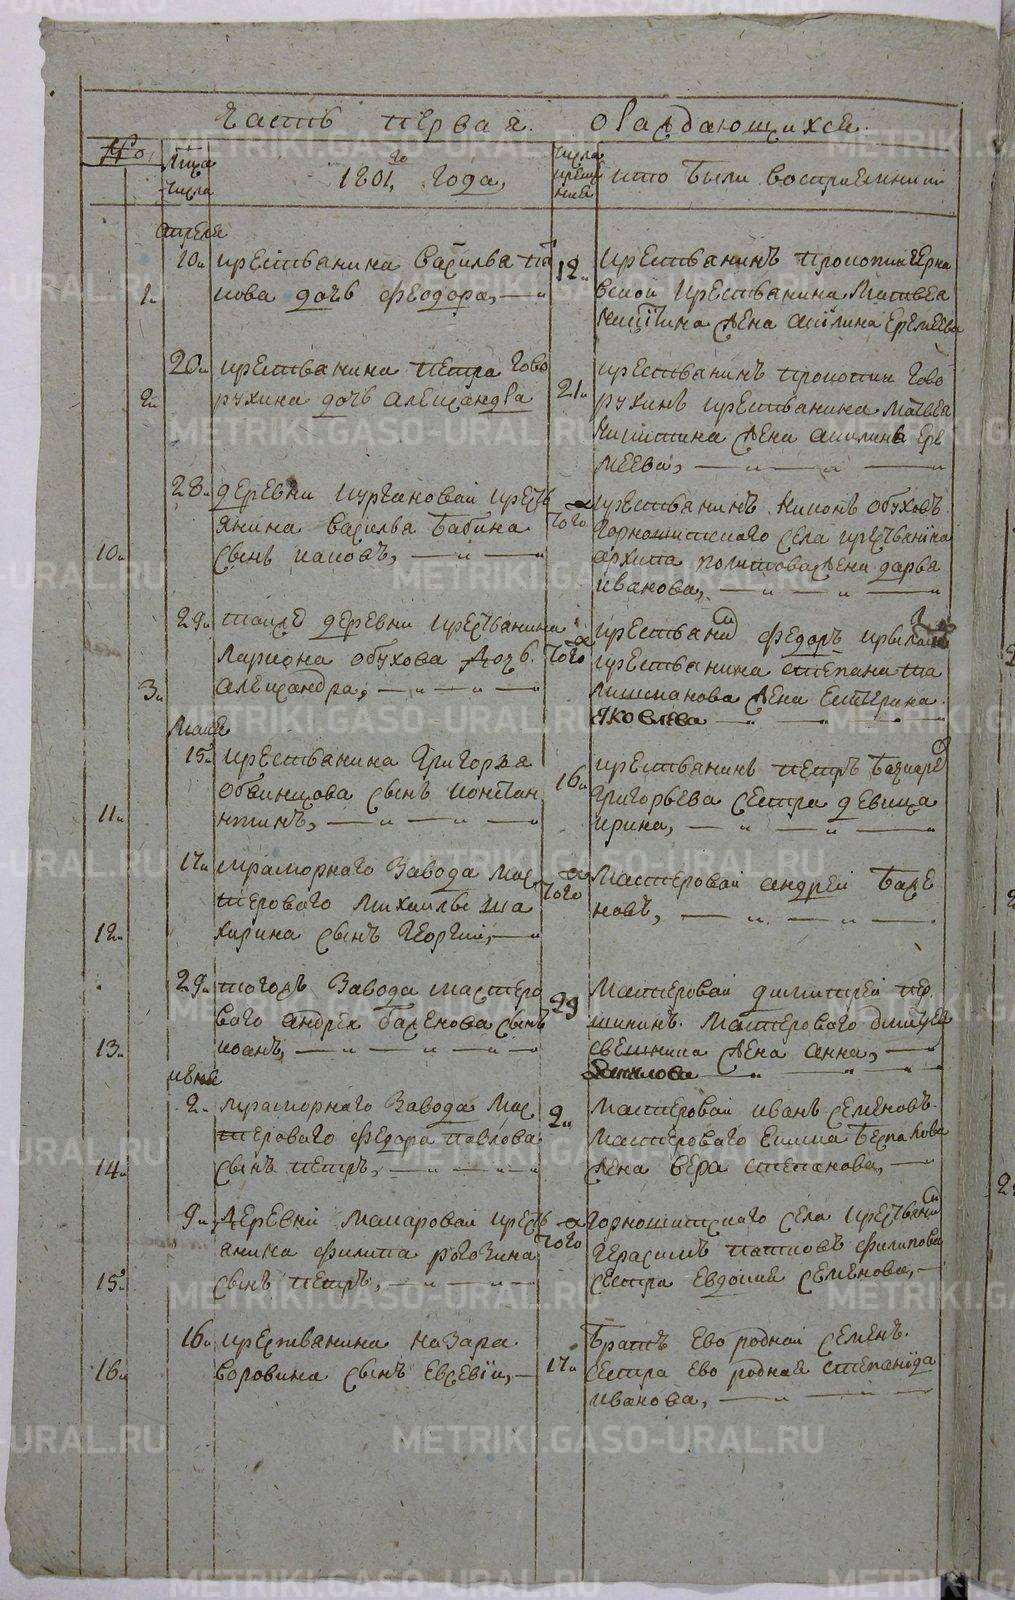 Часть первая. о раждающихся.
№о.
Мца числа
1801го года,
Числа крещения
кто были восприемники
апреля
1. 10. крестьянина василья па
кова дочь феодора,
12. крестьянинъ прокопий черна
вской крестьянина Матвея
Никитина жена акилина Еремеева
2. 20. крестьянина петра гово
рухина дочь александра
21. крестьянинъ прокопий гово
рухинъ крестьянина Матвея
Никитина жена акилина Ере
меева,
10. 28. деревни кургановой кресть
янина василья бабина
сынъ иаковъ,
того ж
крестьянинъ Никонъ обуховъ
горнощитскаго села крестьянина
архипа жена дарья
иванова,
3. 29. той же деревни крестьянина
Лариона обухова дочь
александра,
того ж
федоръ
крестьянина степана та
жена екатерина
яковлева
Маия
11. 15. крестьянина григорья
обвинцова сынъ констан
нтинъ,
16. крестьянинъ петръ
григорьева сестра девица
ирина,
12. 17. мраморнаго завода мас
тероваго михаилы ша
хирина сынъ георгий,
того ж
мастеровой андрей баже
новъ,
13. 29. тогожъ завода мастеро
ваго андрея баженова сынъ
иоанъ,
29
мастеровой димитрей
мастероваго
жена анна,
июня
14. 2. мраморнаго завода мас
тероваго федора павлова
сынъ петръ,
2. мастеровой иванъ семеновъ.
мастероваго екима
жена вера степанова,
15. 9. деревни макаровой кресть
янина филипа рогозина
сынъ петръ,
того ж
горнощитскаго села
герасимъ филипова
сестра евдокия семенова,
16. 16. крестьянина назара
воровина сынъ евсевий,
17. братъ ево родной семенъ.
сестра ево родная степанида
иванова,
METRIKI.GASO-URAL.RU